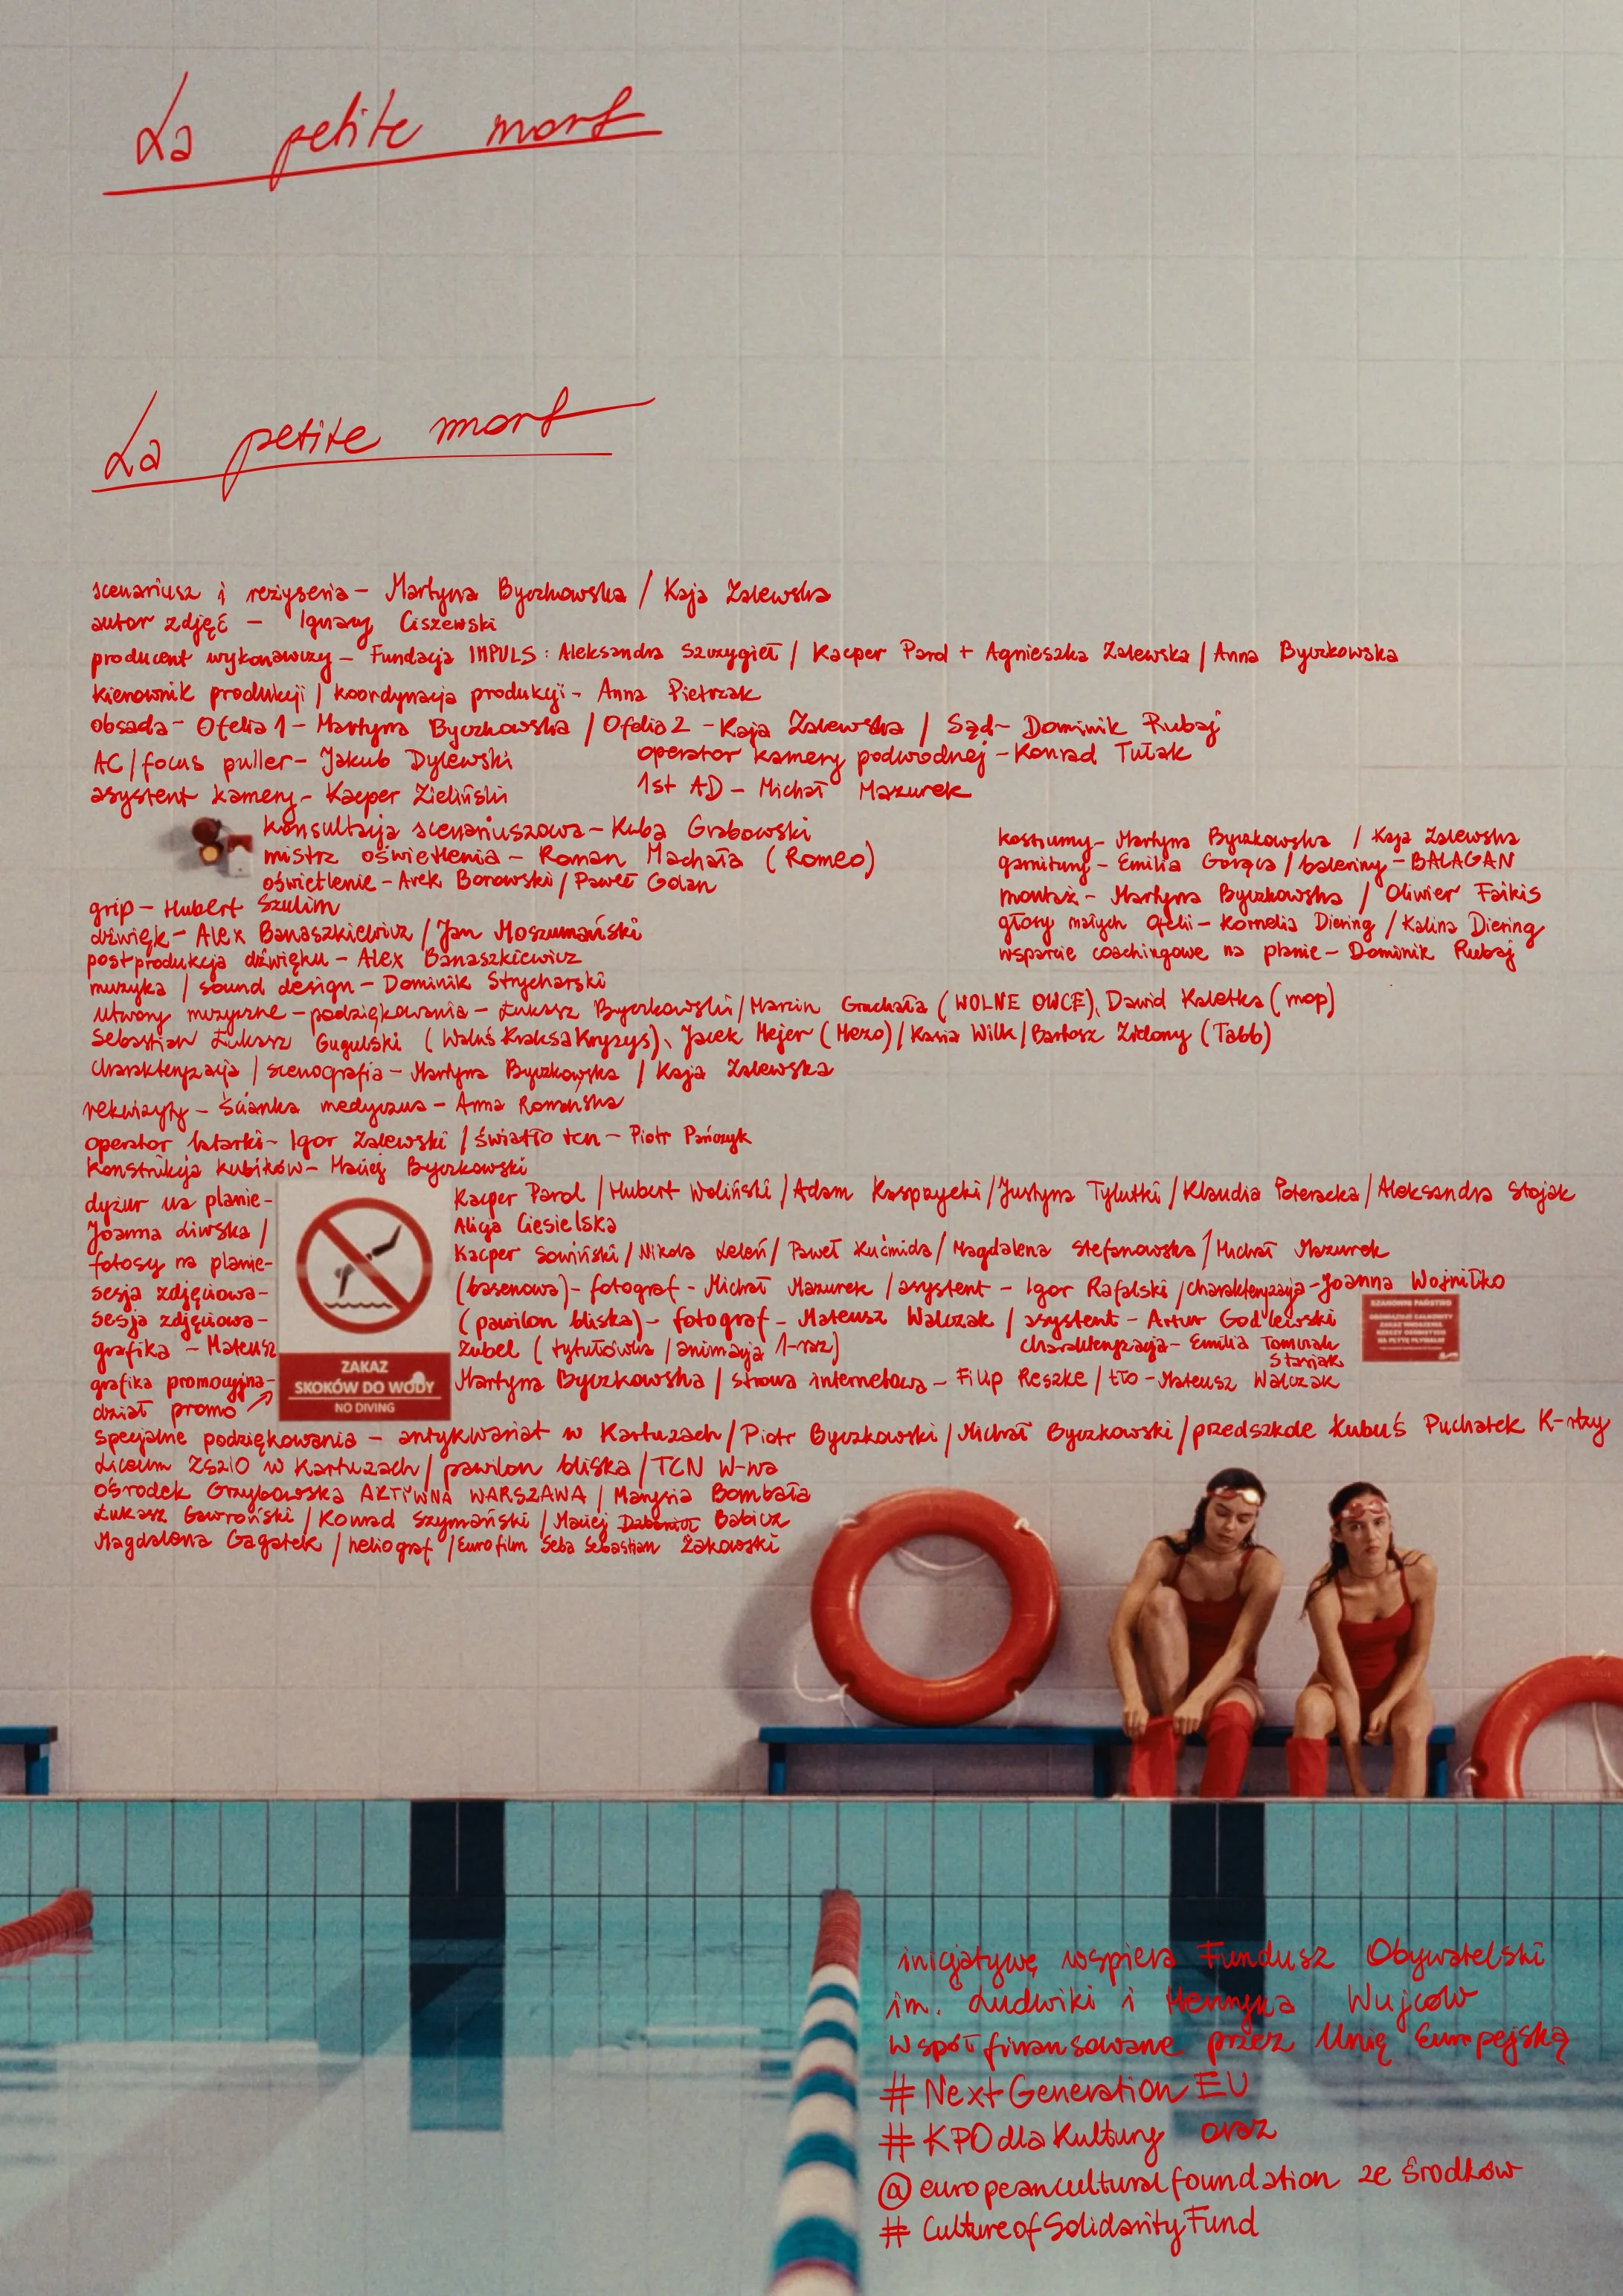 La petite mort
La petite mort
scenariusz i reżyseria – Martyna Byczkowska / Kaja Zalewska
autor zdjęć – Ignacy Ciszewski
producent wykonawczy – Fundacja IMPULS: Aleksandra Szczygieł / Kacper Parol + Agnieszka Zalewska / Anna Byczkowska
kierownik produkcji / koordynacja produkcji – Anna Pietrzak
obsada – Ofelia 1 – Martyna Byczkowska / Ofelia 2 – Kaja Zalewska / Sąd – Dominik Rubaj
AC/focus puller – Jakub Dylewski
operator kamery podwodnej – Konrad Tułak
asystent kamery – Kacper Zieliński
1st AD – Michał Mazurek
konsultacja scenariuszowa – Kuba Grabowski
mistrz oświetlenia – Roman Machała (Romeo)
oświetlenie – Arek Borowski / Paweł Golan
kostiumy – Martyna Byczkowska / Kaja Zalewska
garnitury – Emilia Gorąca / baleriny – BALAGAN
montaż – Martyna Byczkowska / Oliwier Faikis
głosy małych Ofelii – Kornelia Diering / Kalina Diering
wsparcie coachingowe na planie – Dominik Rubaj
grip – Hubert Szulim
dźwięk – Alex Banaszkiewicz / Jan Moszumański
postprodukcja dźwięku – Alex Banaszkiewicz
muzyka / sound design – Dominik Strycharski
utwory muzyczne – podziękowania – Łukasz Byczkowski / Marcin Gruchała (WOLNE OWCE), Dawid Kaletka (mop)
Sebastian Łukasz Gugulski (WaluśKraksaKryzys), Jacek Mejer (Mezo) / Kasia Wilk / Bartosz Zielony (Tabb)
charakteryzacja / scenografia – Martyna Byczkowska / Kaja Zalewska
rekwizyty – Ścianka medyczna – Anna Romańska
operator latarki – Igor Zalewski / światło tcn – Piotr Pańczyk
Konstrukcja kubików – Maciej Byczkowski
dyżur na planie – Kacper Parol / Hubert Woliński / Adam Kasprzycki / Justyna Tylutki / Klaudia Poteracka / Aleksandra Stojak
Joanna Liwska / Alicja Ciesielska
fotosy na planie – Kacper Sowiński / Nikola Leleń / Paweł Kućmida / Magdalena Stefanowska / Michał Mazurek
sesja zdjęciowa – (basenowa) – fotograf – Michał Mazurek / asystent – Igor Rafalski / charakteryzacja – Joanna Wojniłko
sesja zdjęciowa – (pawilon bliska) – fotograf – Mateusz Walczak / asystent – Artur Godlewski
charakteryzacja – Emilia Tomurak Starjak
grafika – Mateusz Zubel (tytułówka / animacja 1-raz)
grafika promocyjna – Martyna Byczkowska / strona internetowa – Filip Reszke / tło – Mateusz Walczak
dział promo
ZAKAZ
SKOKÓW DO WODY
NO DIVING
SZANOWNI PAŃSTWO
OBOWIĄZUJE CAŁKOWITY
ZAKAZ WNOSZENIA
RZECZY OSOBISTYCH
NA PŁYTĘ PŁYWALNI
specjalne podziękowania – antykwariat w Kartuzach / Piotr Byczkowski / Michał Byczkowski / przedszkole Kubuś Puchatek K-rtzy
Liceum ZSZiO w Kartuzach / pawilon bliska / TCN W-wa
Ośrodek Grzybowska AKTYWNA WARSZAWA / Marysia Bombała
Łukasz Gawroński / Konrad Szymański / Maciej Babicz
Magdalena Gagatek / heliograf / Eurofilm Seba Sebastian Żakowski
inicjatywę wspiera Fundusz Obywatelski
im. Ludwiki i Henryka Wujców
Współfinansowane przez Unię Europejską
#NextGenerationEU
#KPOdlaKultury oraz
@europeanculturalfoundation ze środków
#CultureofSolidarityFund